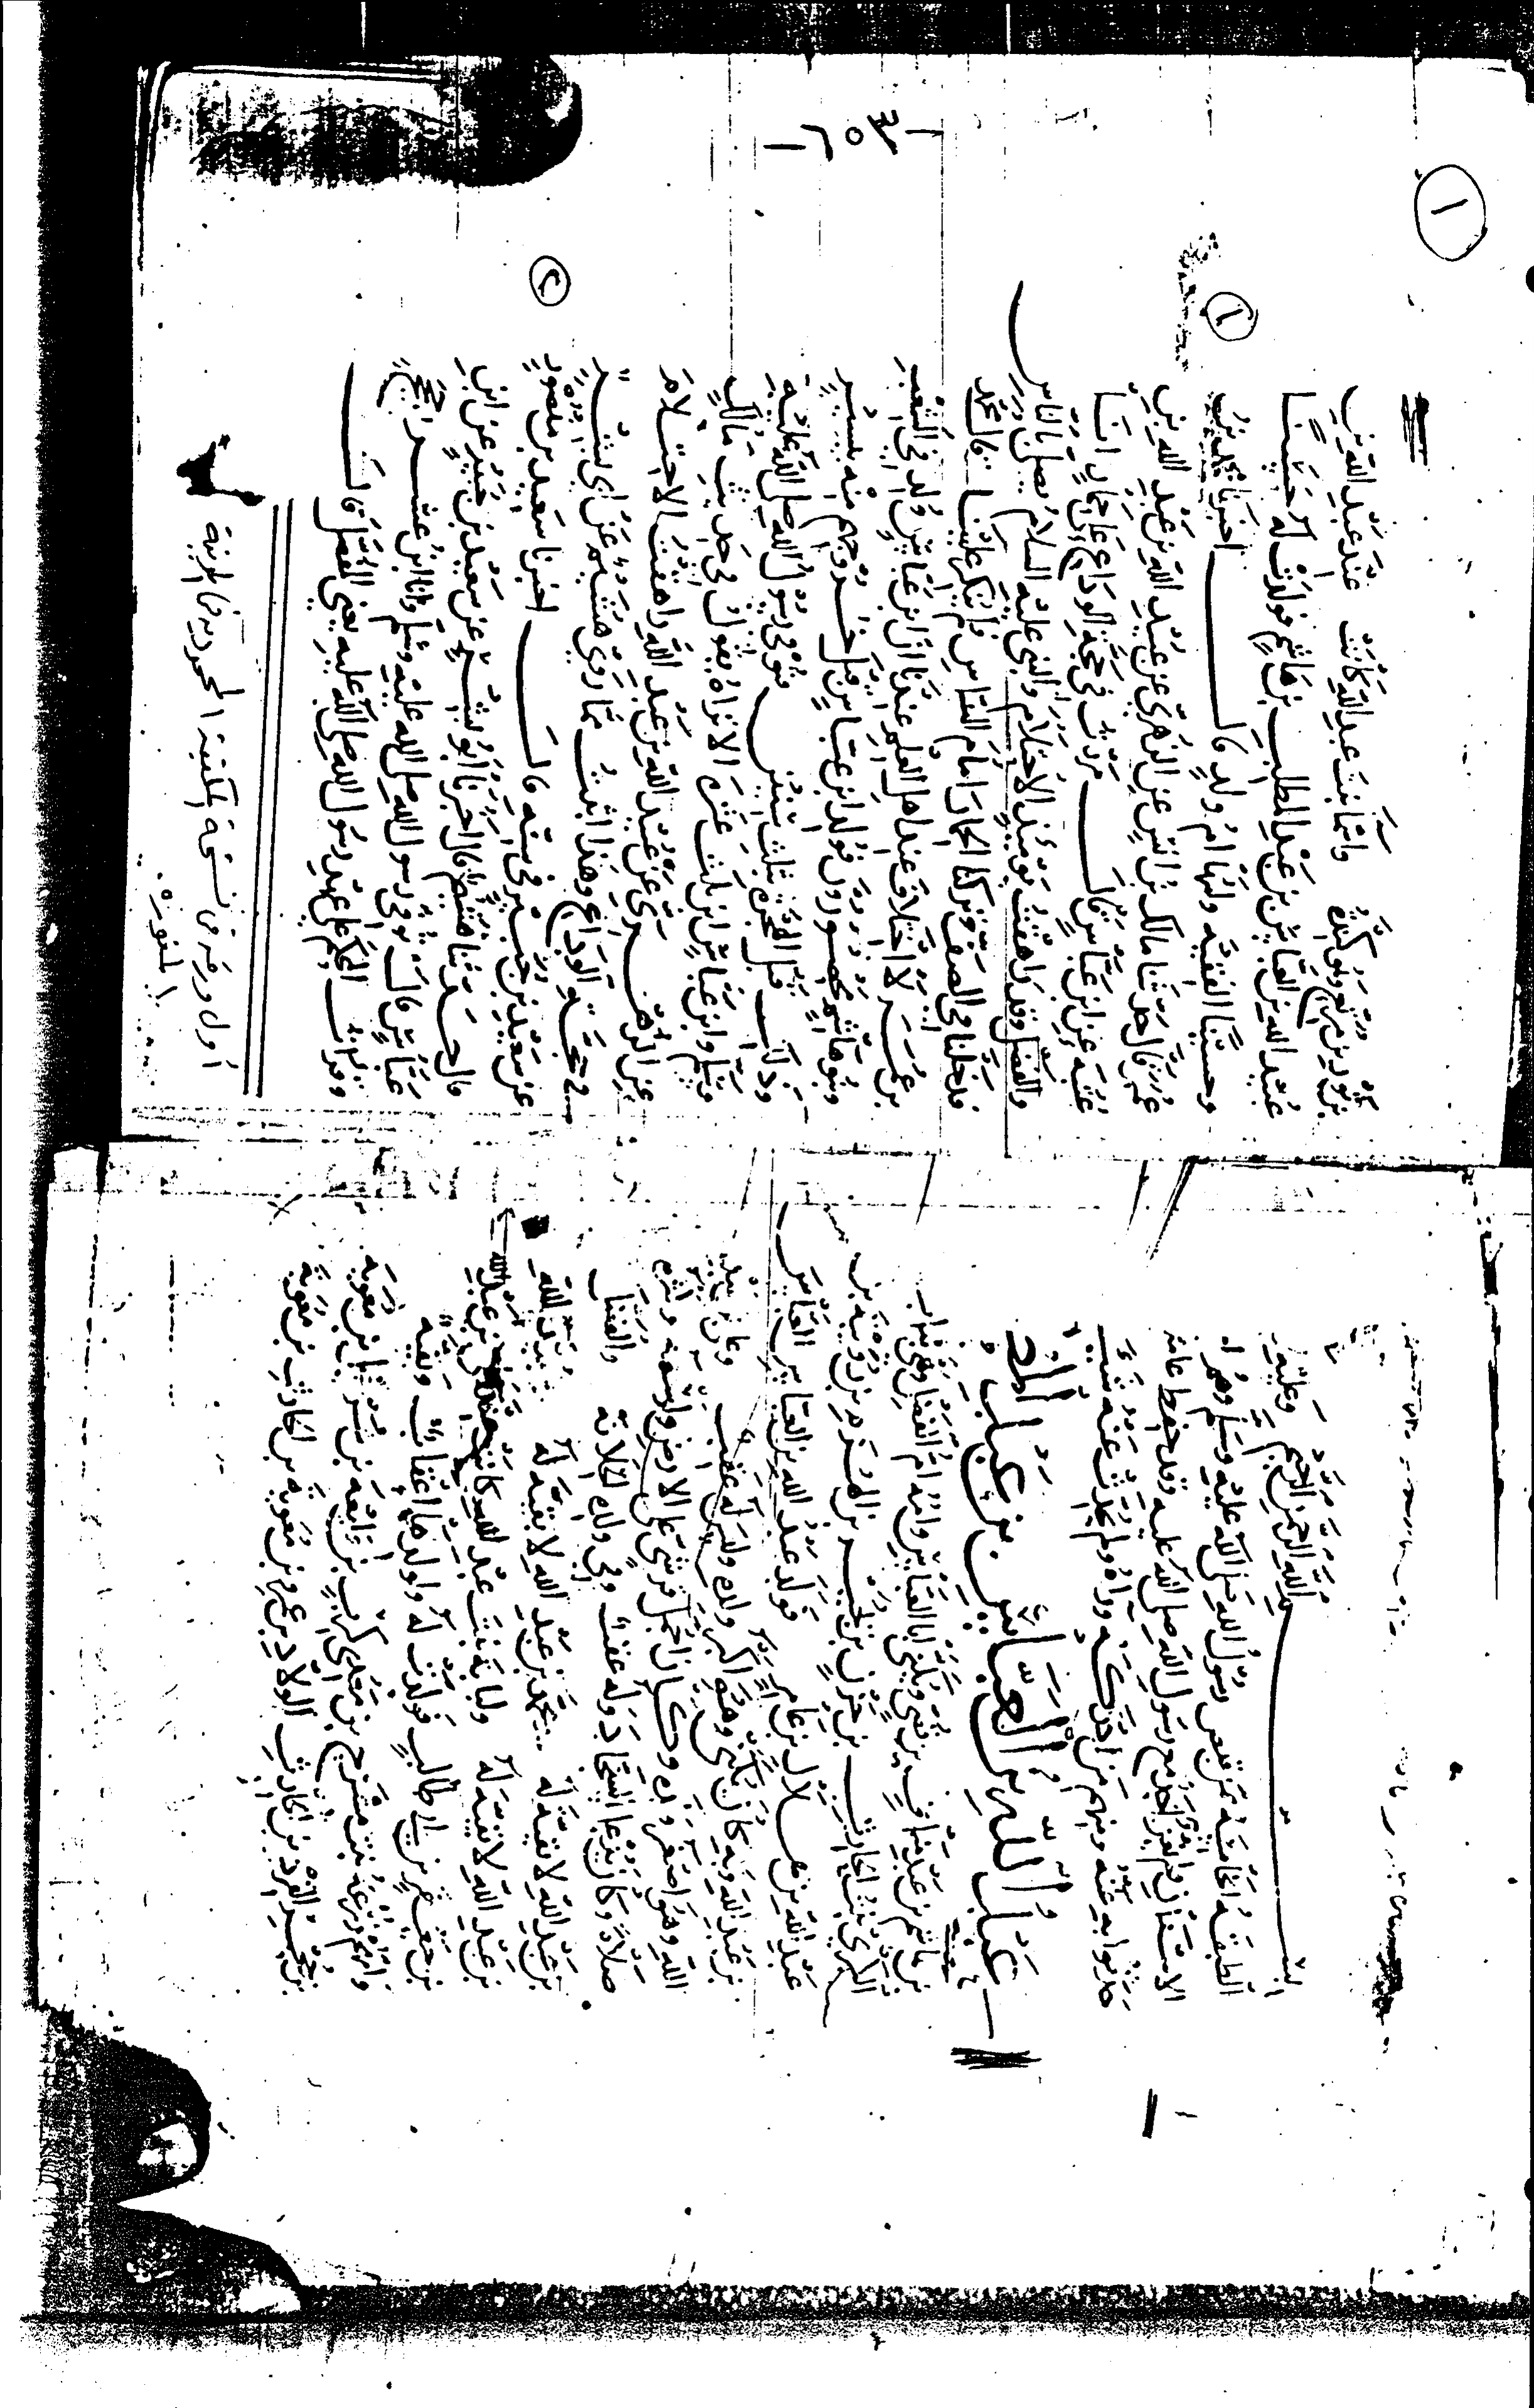 بسم الله الرحمن الرحيم
الطبقة الخامسة ممن قبض رسول الله صلى الله عليه وسلم وهم
الاسنان ولم يغز منهم احد مع رسول الله صلى الله عليه وقد حفظ عامة
ما حدثوا به عنه ومنهم من ادركه وراه ولم يحدث عنه شيئا
عبد الله بن العباس بن عبد المطلب
بن هاشم بن عبد مناف بن قصي ويكنى ابا العباس وامه ام الفضل وهي لبابة
الكبرى بنت الحارث بن حزن بن بجير بن الهزم بن رويبة بن
عبد الله بن هلال بن عامر فولد عبد الله بن العباس العباس
بن عبد الله وبه كان يكنى وهو اكبر ولده وليس له عقب وعلي بن عبد
الله وهو اصغر ولده وكان اجمل قرشي على الارض واوسمه واكثره
صلاة وكان يدعا السجاد وله عقب وفي ولده الخلافة والفضل
بن عبد الله لا بقية له ومحمد بن عبد الله لا بقية له وعبيد الله
بن عبد الله لا بقية له ولبابة بنت عبد الله كانت عند علي بن عبد الله
بن جعفر بن ابي طالب فولدت له ولولدها اعقاب وبقية
وامهم زرعة بنت مشرح بن معدي كرب بن وليعة بن شرحبيل بن معوية
بن حجر القرد بن الحارث الولادة بن عمرو بن معوية بن الحارث بن معوية
١
-٢٥٣-
١
٢
بن ثور بن مرتع وهو كندة واسماء بنت عبد الله كانت عند عبد الله بن
عبيد الله بن العباس بن عبد المطلب بن هاشم فولدت له حسنا
وحسينا الفقيه وامها ام ولد قال اخبرنا محمد بن
عمر قال حدثنا مالك بن انس عن الزهري عن عبيد الله بن عبد الله بن
عتبة عن ابن عباس قال مررت في حجة الوداع على حمار انا
والفضل وقد راهقت يومئذ الاحتلام والنبي عليه السلام يصلي بالناس
فدخلنا في الصف وتركنا الحمار امام الناس فلم ينكر علينا قال محمد
بن عمر لا اختلاف عند اهل العلم عندنا ان ابن عباس ولد في الشعب
وبنو هاشم محصورون فولد ابن عباس قبل خروجهم منه بيسير
وذلك قبل الهجرة بثلث سنين وتوفي رسول الله صلى الله عليه
وسلم وابن عباس ابن ثلث عشرة الا تراه يقول في حديث مالك
عن الزهري عن عبيد الله بن عبد الله راهقت الاحتلام
في حجة الوداع وهذا اثبت مما روى هشيم عن ابي بشر
عن سعيد بن جبير في سنه قال اخبرنا سعيد بن منصور
قال حدثنا هشيم قال اخبرنا ابو بشر عن سعيد بن جبير عن ابن
عباس قال توفي رسول الله صلى الله عليه وسلم وانا ابن عشر حجج
وقرات المحكم على عهد رسول الله صلى الله عليه يعني المفصل قال
أول ورقة من نسخة المكتبة المحمودية بالمدينة
المنورة